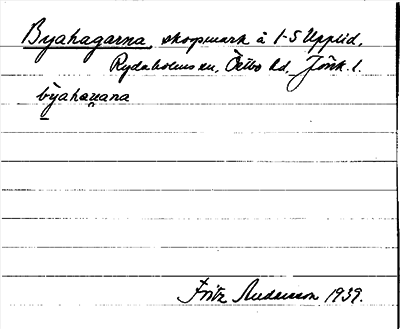 Byahagarna, skogsmark å 1-5 Upplid,
Rydaholms sn, Östbo hd, Jönk. l.
byahaɡana
Fritz Andersson 1939.